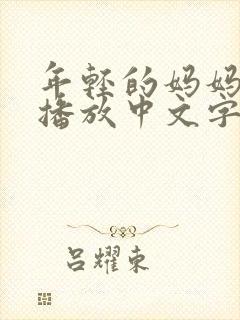 年轻的妈妈
播放中文字
吕耀东